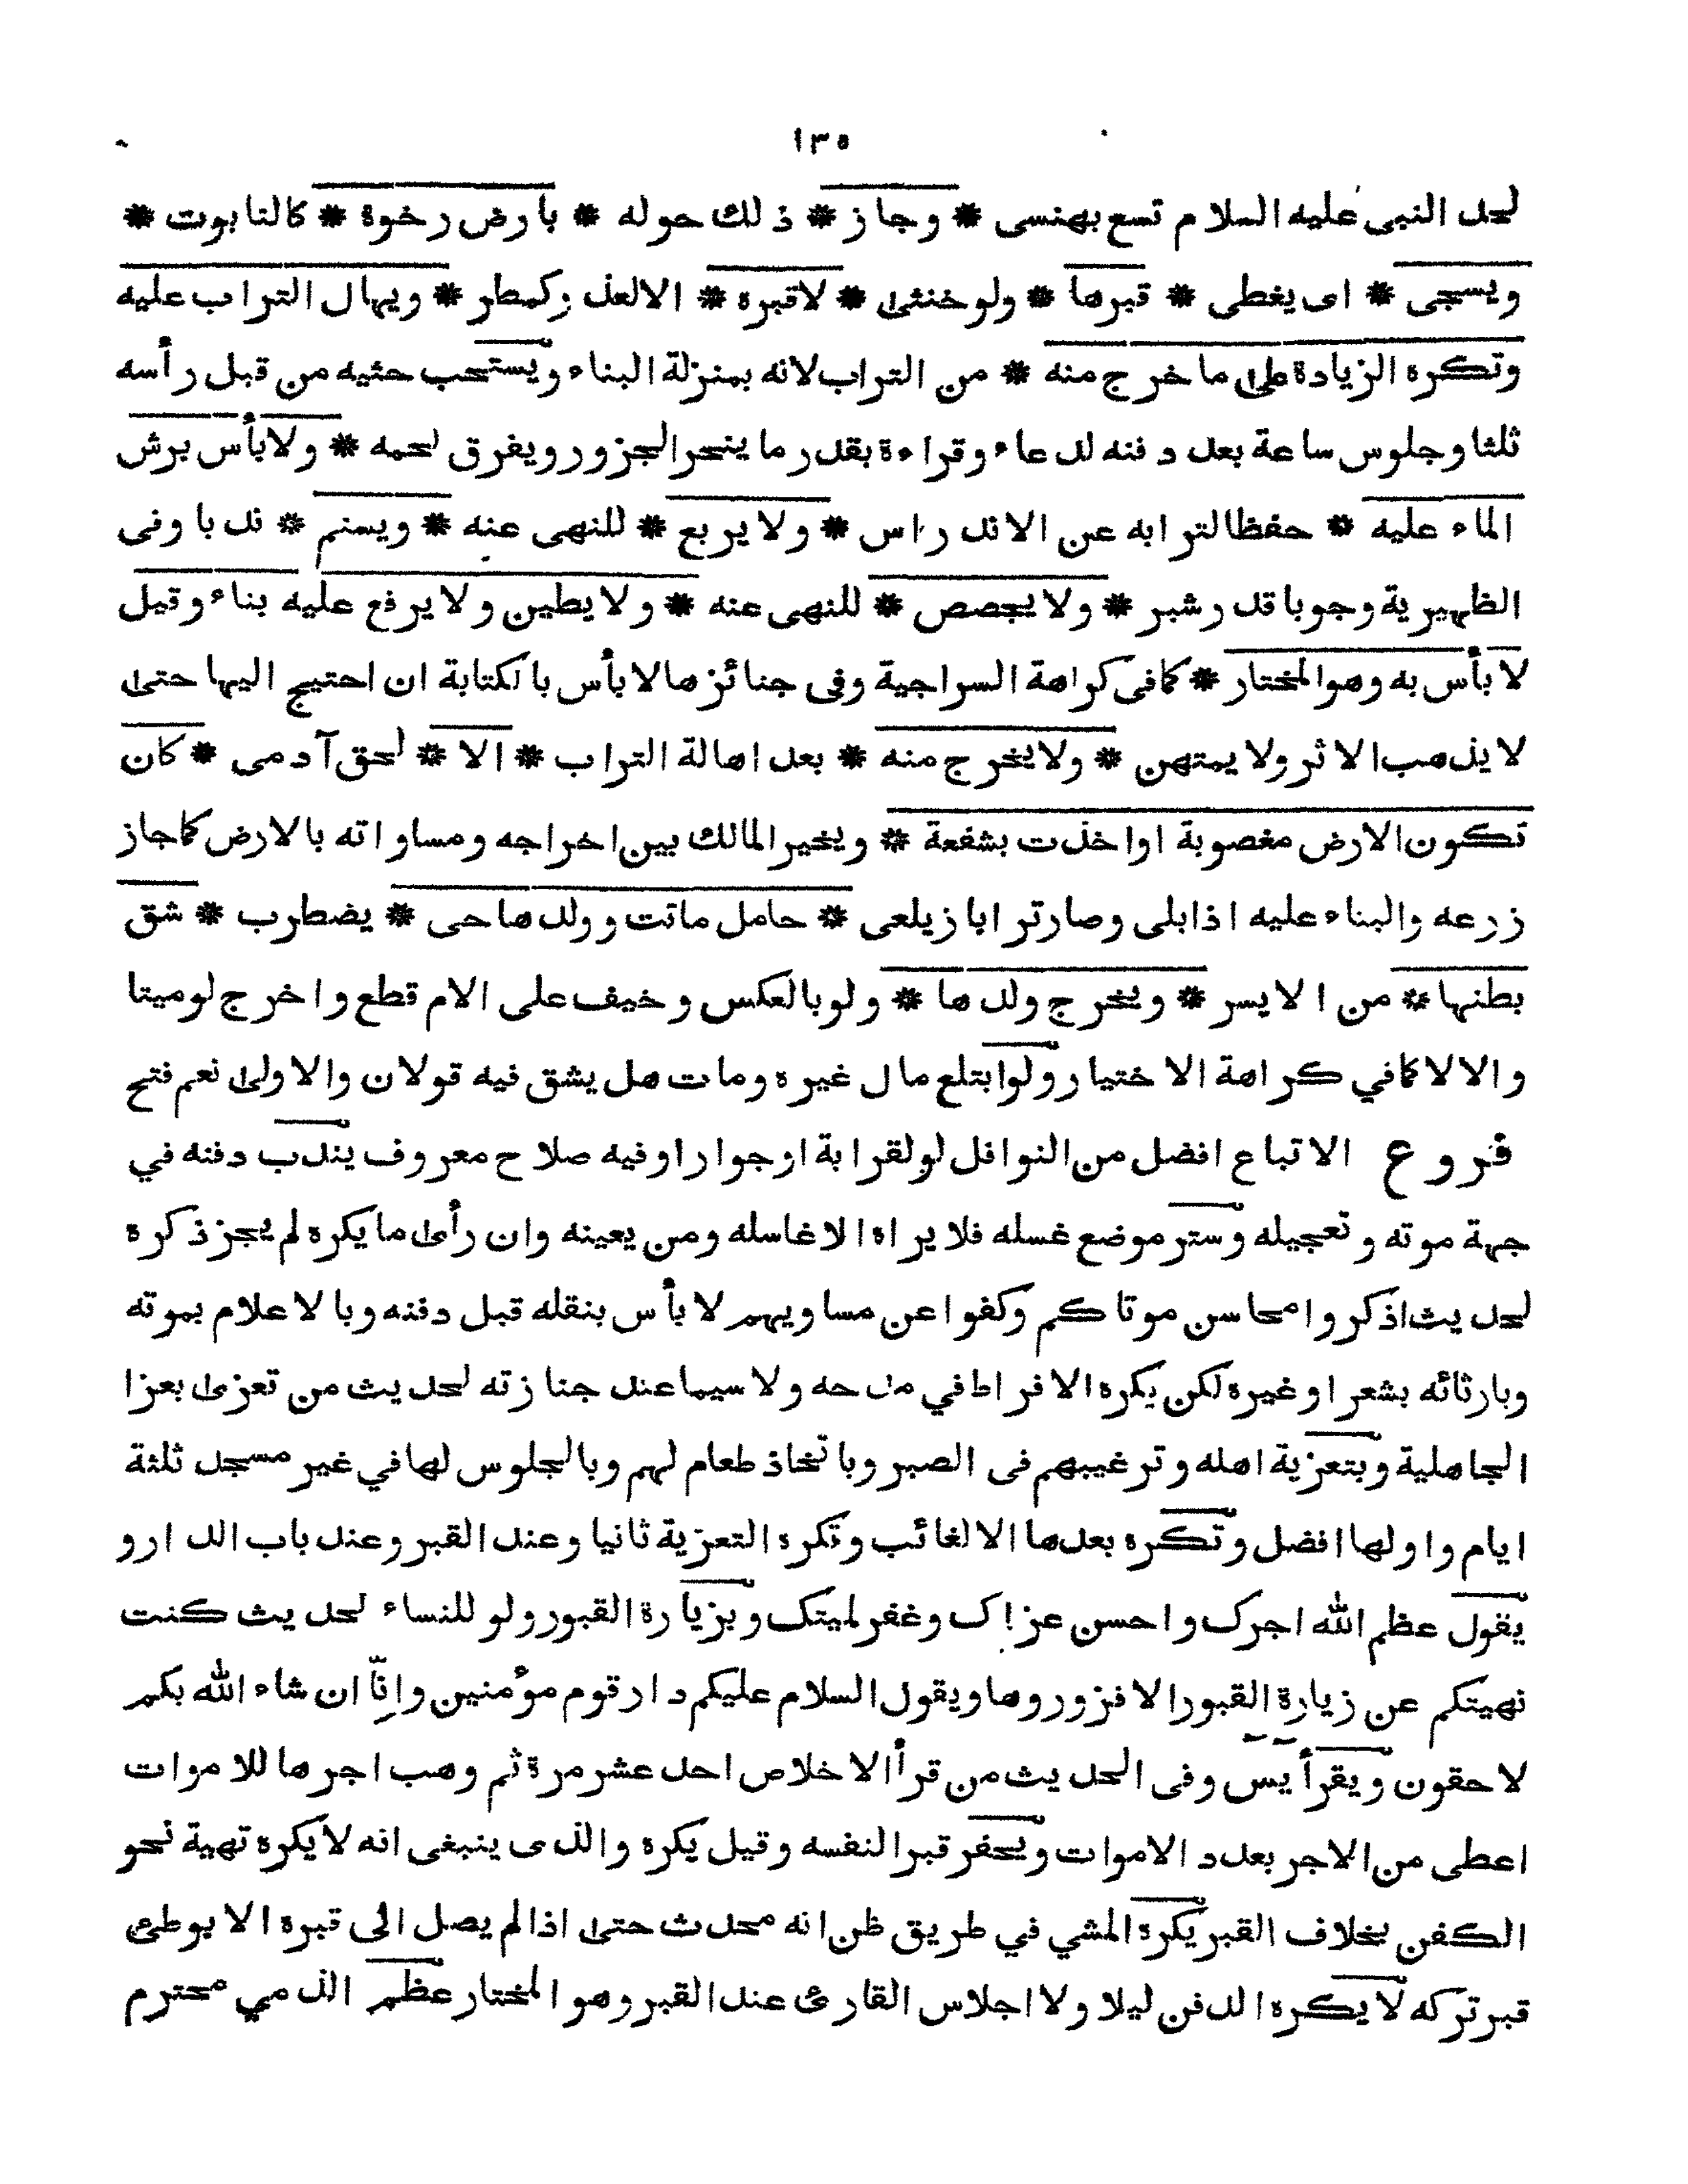 ١٣٥
لحد النبى عليه السلام تسع بهنسى * وجاز * ذلك حوله * بارض رخوة * كالتابوت *
ويسجى * اى يغطى * قبرها * ولو خنثى * لاقبره * الا لعذر كمطر * ويهال التراب عليه
وتكره الزيادة على ما خرج منه * من التراب لانه بمنزلة البناء ويستحب حثيه من قبل رأسه
ثلثا وجلوس ساعة بعد دفنه لدعاء وقراءة بقدر ما ينحر الجزور ويفرق لحمه * ولا بأس برش
الماء عليه * حفظا لترابه عن الاندراس * ولا يربع * للنهى عنه * ويسنم * ندبا وفى
الظهيرية وجوبا قدر شبر * ولا يجصص * للنهى عنه * ولا يطين ولا يرفع عليه بناء وقيل
لا بأس به وهو المختار * كما فى كراهة السراجية وفى جنائزها لا بأس بالكتابة ان احتيج اليها حتى
لا يذهب الاثر ولا يمتهن * ولا يخرج منه * بعد اهالة التراب * الا * لحق آدمى * كان
تكون الارض مغصوبة او اخذت بشفعة * ويخير المالك بين اخراجه ومساواته بالارض كما جاز
زرعه والبناء عليه اذا بلى وصار ترابا زيلعى * حامل ماتت وولدها حى * يضطرب * شق
بطنها * من الايسر * ويخرج ولدها * ولو بالعكس وخيف على الام قطع واخرج لو ميتا
والا لا كما في كراهة الاختيار ولو ابتلع مال غيره ومات هل يشق فيه قولان والاولى نعم فتح
فروع الاتباع افضل من النوافل لو لقرابة او جوار او فيه صلاح معروف يندب دفنه في
جهة موته وتعجيله وستر موضع غسله فلا يراه الا غاسله ومن يعينه وان رأى ما يكره لم يجز ذكره
لحديث اذكروا محاسن موتاكم وكفوا عن مساويهم لا بأس بنقله قبل دفنه وبالاعلام بموته
وبارثائه بشعر او غيره لكن يكره الافراط في مدحه ولا سيما عند جنازته لحديث من تعزى بعزا
الجاهلية وبتعزية اهله وترغيبهم فى الصبر وباتخاذ طعام لهم وبالجلوس لها في غير مسجد ثلثة
ايام واولها افضل وتكره بعدها الا لغائب وتكره التعزية ثانيا وعند القبر وعند باب الدار و
يقول عظم الله اجرك واحسن عزاك وغفر لميتك وبزيارة القبور ولو للنساء لحديث كنت
نهيتكم عن زيارة القبور الا فزوروها ويقول السلام عليكم دار قوم مؤمنين وانّا ان شاء الله بكم
لاحقون ويقرأ يس وفى الحديث من قرأ الاخلاص احد عشر مرة ثم وهب اجرها للاموات
اعطى من الاجر بعدد الاموات ويحفر قبرا لنفسه وقيل يكره والذى ينبغى انه لا يكره تهية نحو
الكفن بخلاف القبر يكره المشي في طريق ظن انه محدث حتى اذا لم يصل الى قبره الا بوطئ
قبر تركه لا يكره الدفن ليلا ولا اجلاس القارئ عند القبر وهو المختار عظم الذمي محترم